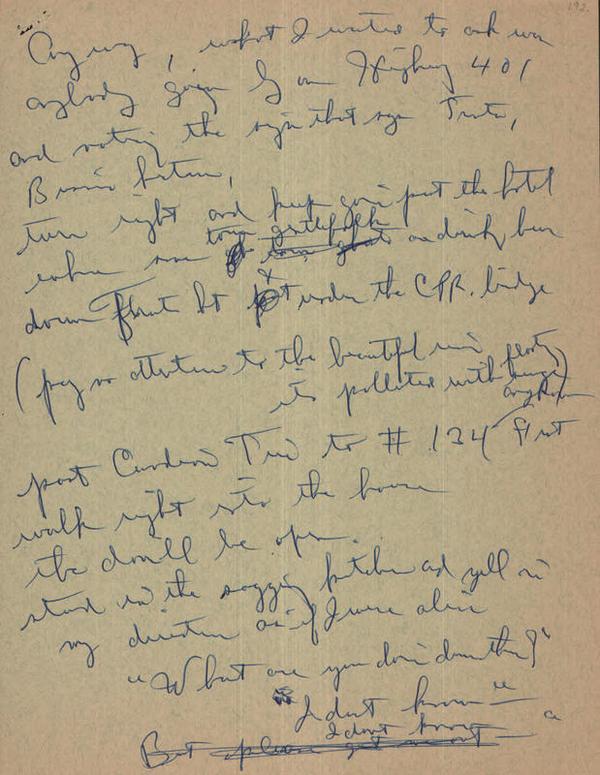 192.
Anyway, what I wanted to ask was
anybody going by on Highway 401
and noticing the sign that says Trenton,
turn right and keep goin past the hotel
where some town are drinkin beer
down Front St under the CPR. bridge
(pay no attention to the beautiful river
its polluted with
past Canadian Tire to # 134 Front
walk right into the house
the door'll be open.
stand in the sagging kitchen and yell in
my direction as if I were alive
"What are you doin down there?"
I dont know"
I dont know
But please get me out